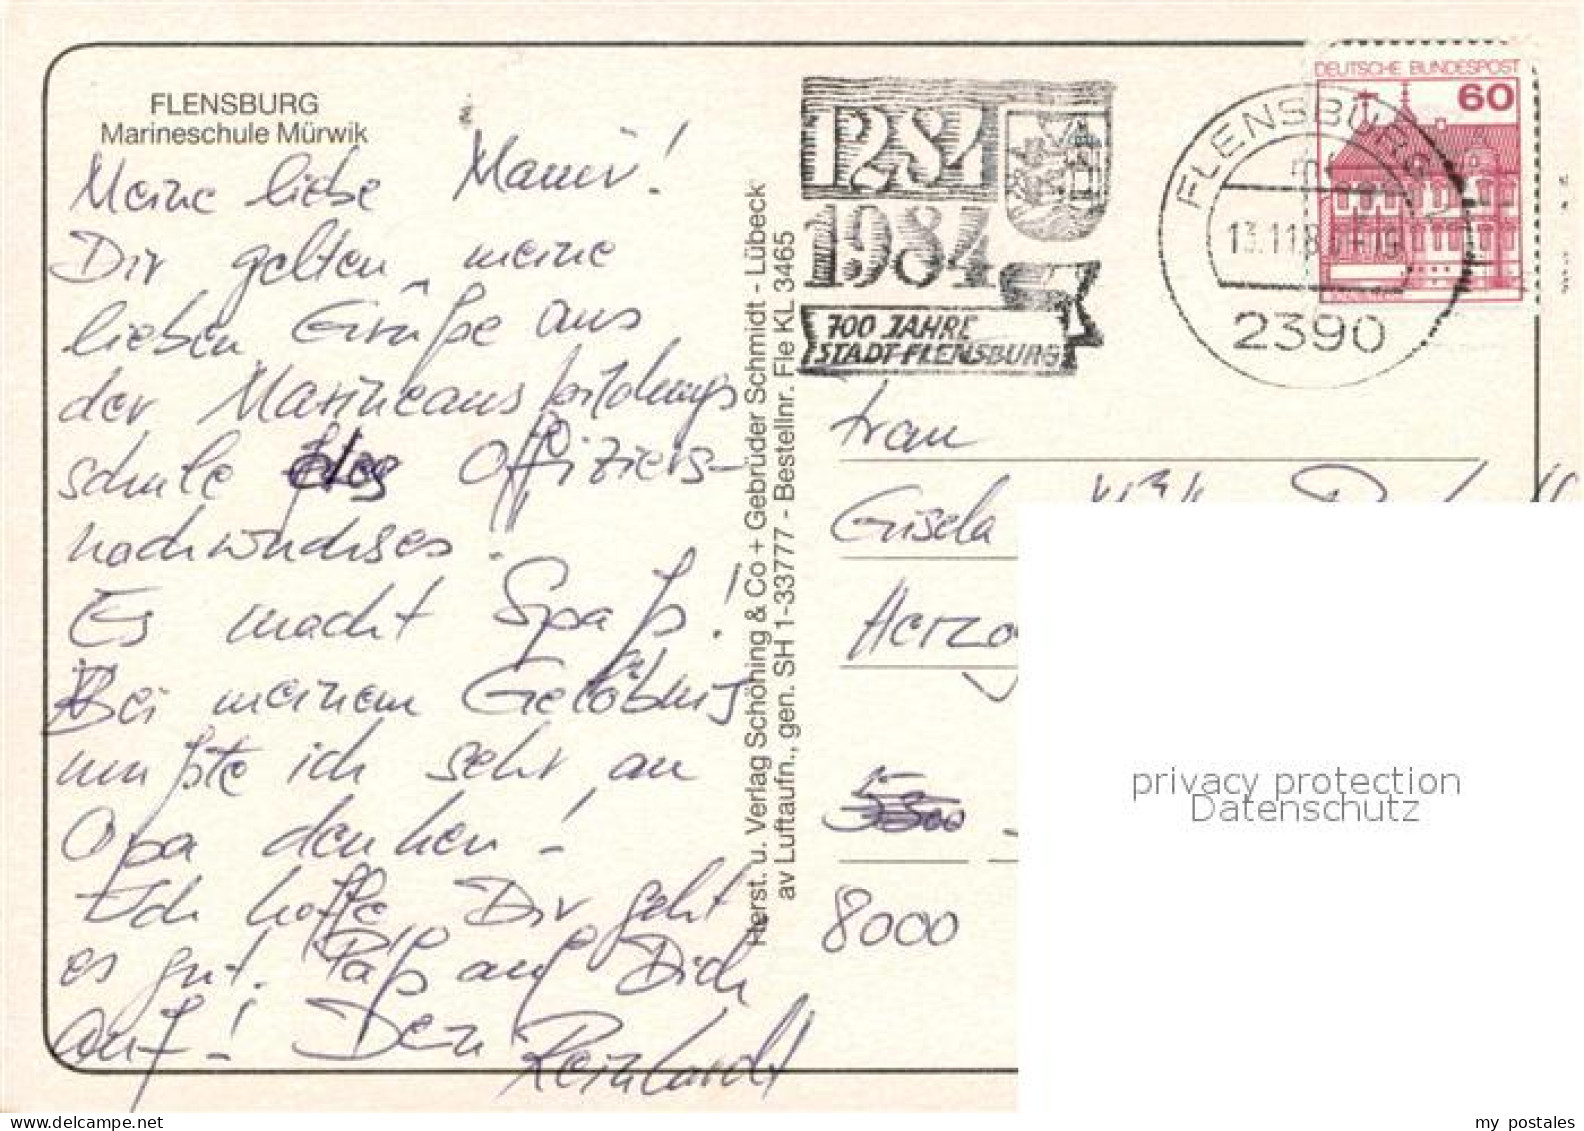 FLENSBURG
Marineschule Mürwik
Meine liebe Mami!
Dir gelten meine
lieben Grüße aus
der Marineausbildungs
schule des Offiziers-
nachwuchses!
Es macht Spaß!
Bei meinem Gelöbnis
mußte ich sehr an
Opa denken!
Ich hoffe Dir geht
es gut. Paß auf Dich
auf! Dein
Reinhardt
Herst. u. Verlag Schöning & Co + Gebrüder Schmidt - Lübeck
av Luftaufn., gen. SH 1-33777 - Bestellnr. Fle KL 3465
1284
1984
700 JAHRE
STADT FLENSBURG
FLENSBURG
13.11.8
2390
DEUTSCHE BUNDESPOST
60
Frau
Gisela
Herzo
5300
8000
privacy protection
Datenschutz
my postales